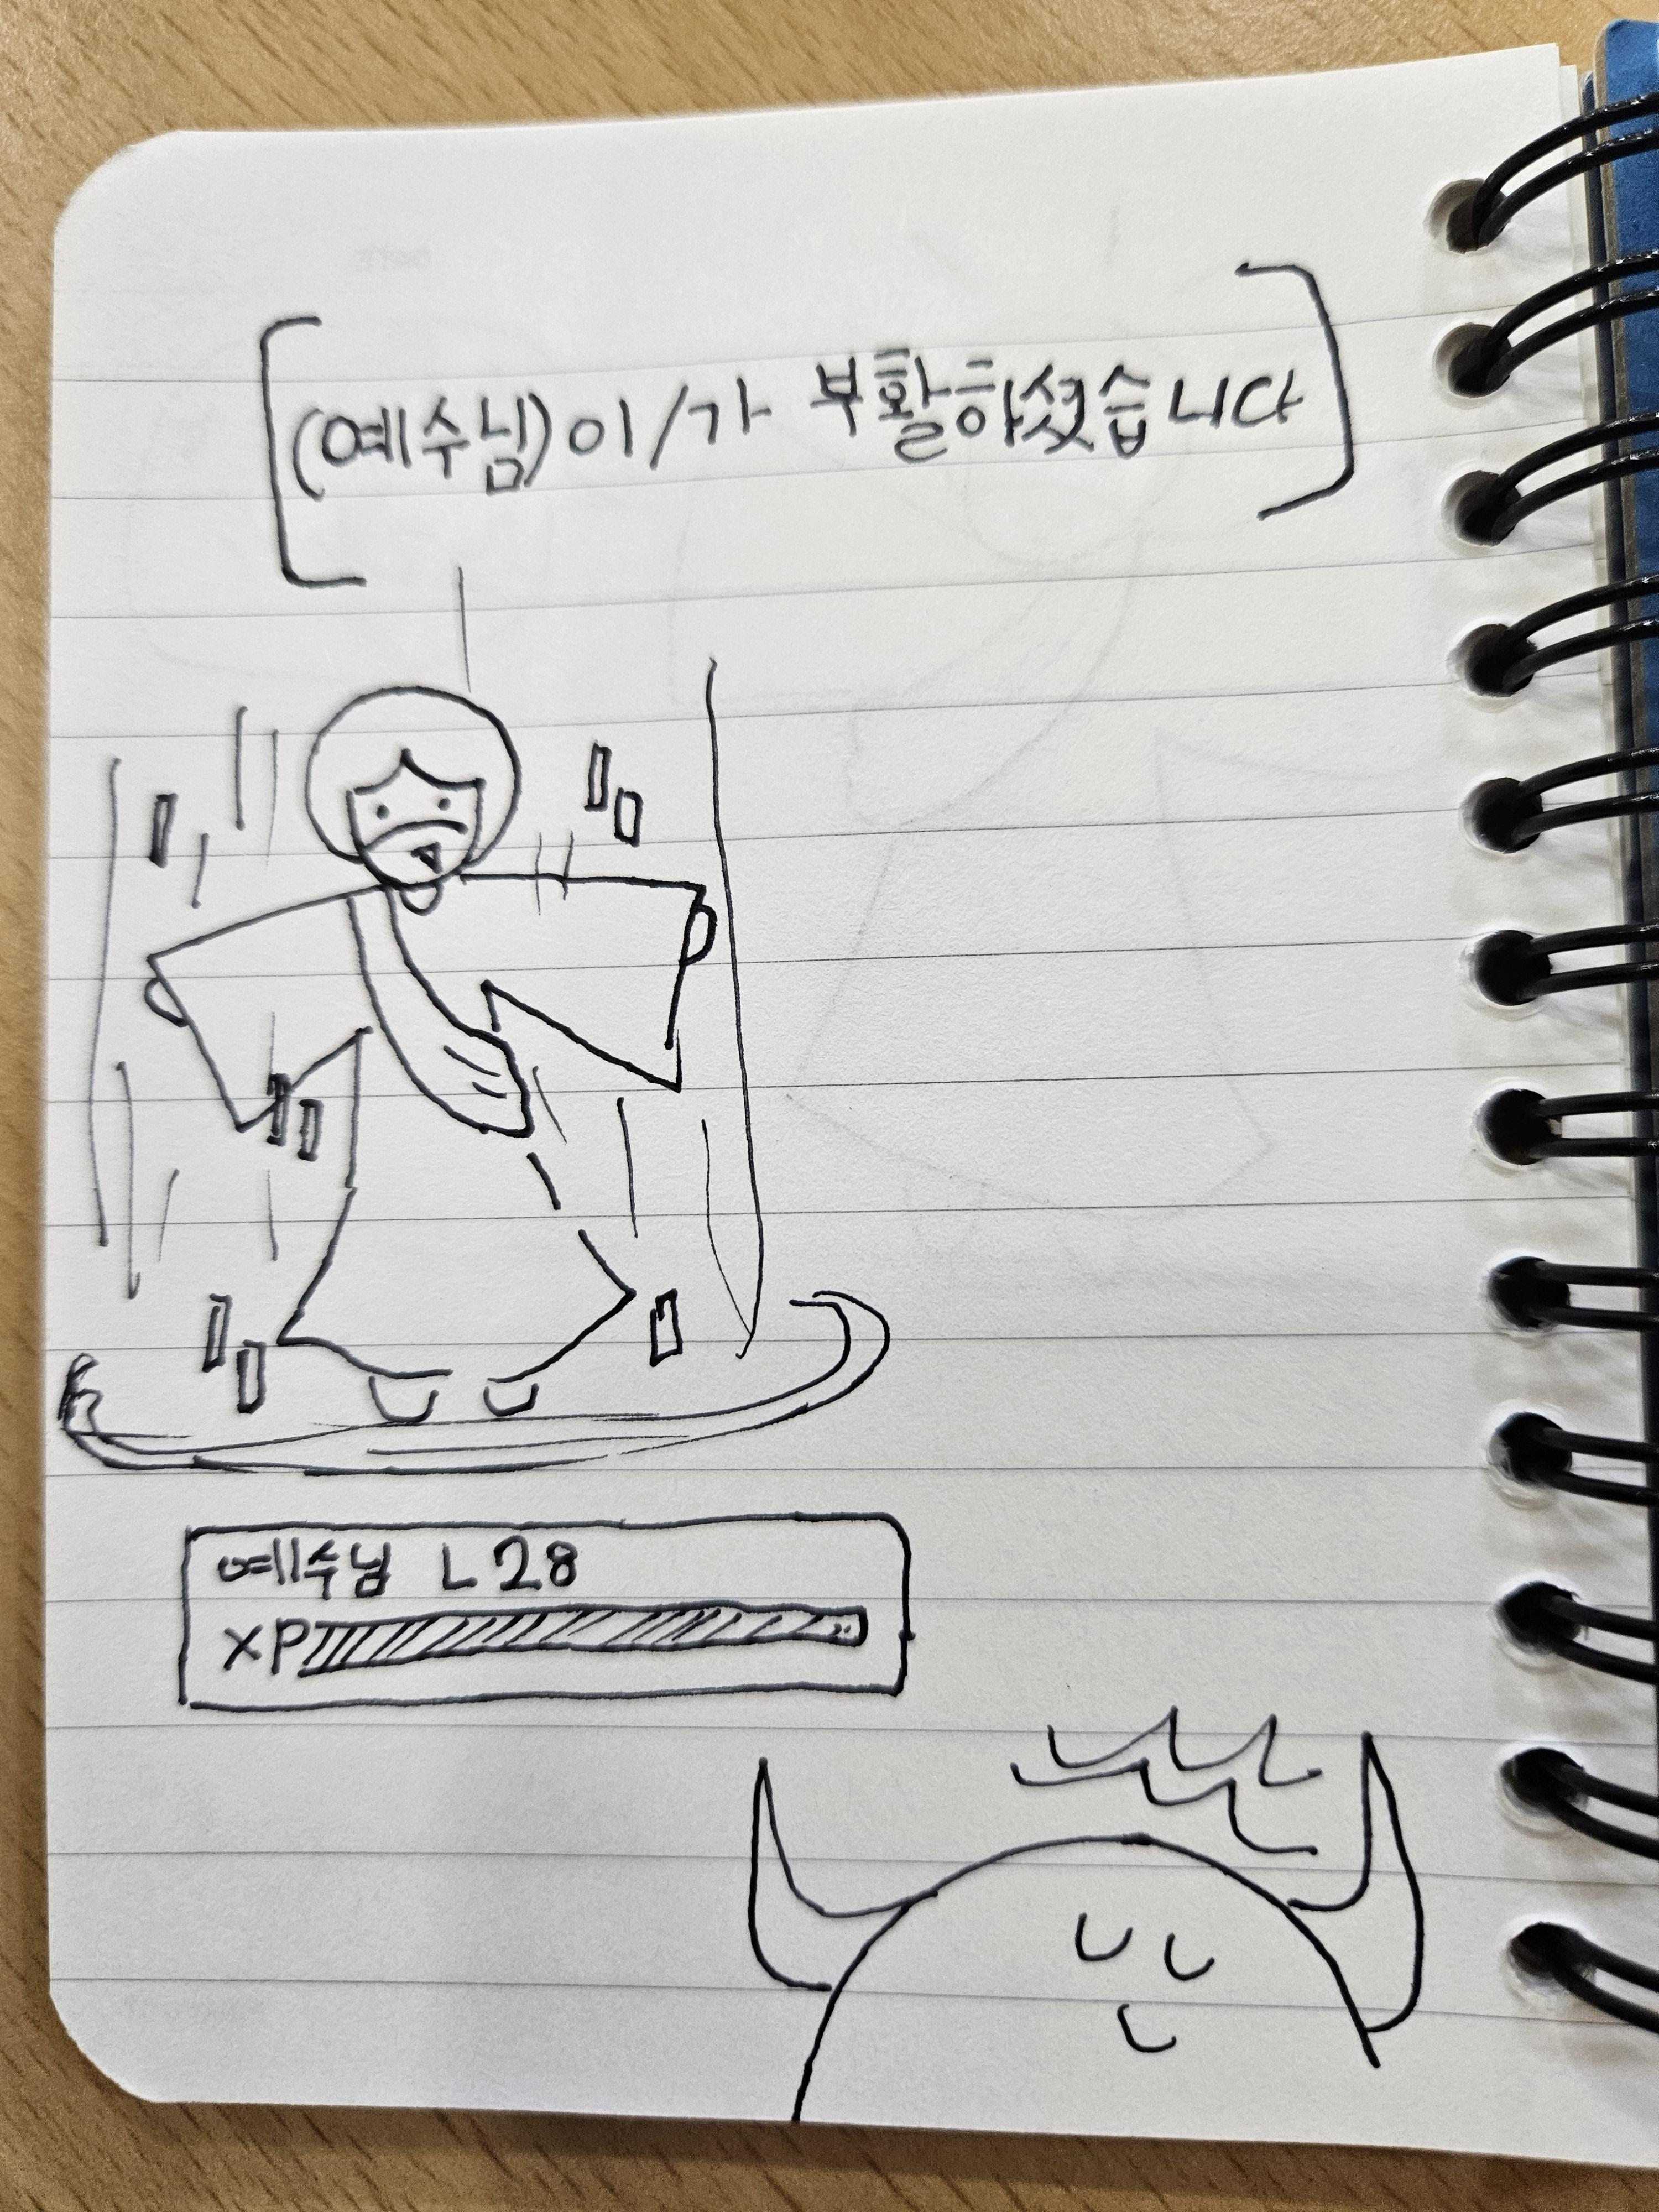 [(예수님)이/가 부활하셨습니다]
예수님 L 28
XP